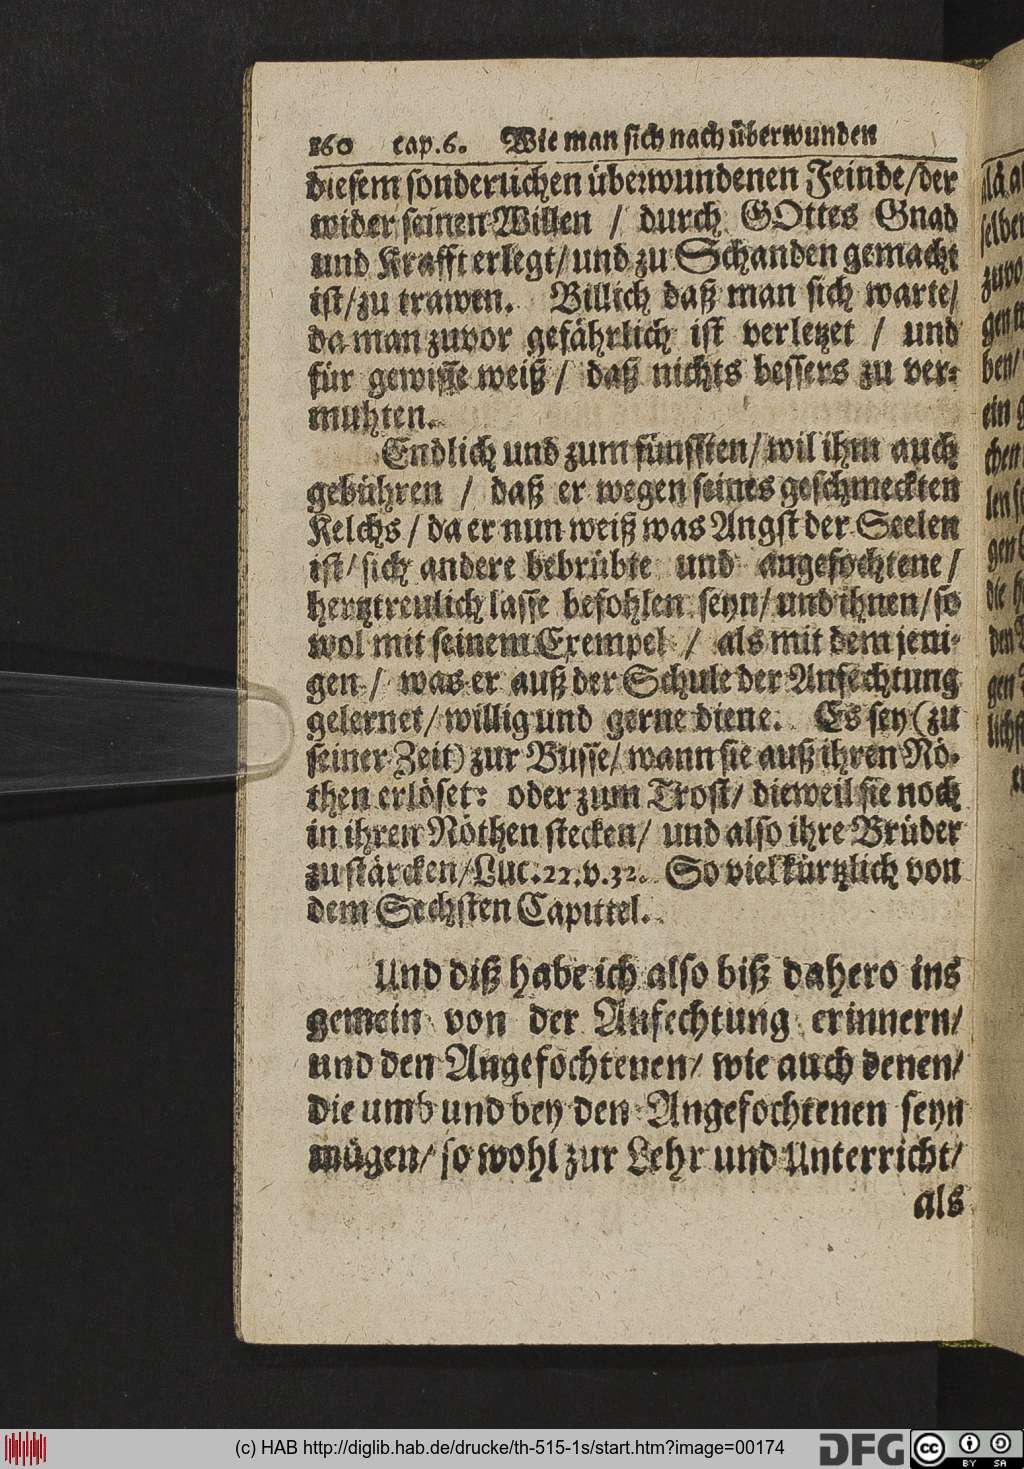 160 cap. 6. Wie man sich nach überwunden
diesem sonderlichen überwundenen Feinde/der
wider seinen Willen / durch GOttes Gnad
und Krafft erlegt/ und zu Schanden gemacht
ist/zu trawen. Billich daß man sich warte/
da man zuvor gefährlich ist verletzet / und
für gewisse weiß / daß nichts bessers zu ver-
muhten.
Endlich und zum fünfften/ wil ihm auch
gebühren / daß er wegen seines geschmeckten
Kelchs / da er nun weiß was Angst der Seelen
ist/ sich andere bebrübte und angefochtene /
hertztreulich lasse befohlen seyn/ und ihnen/ so
wol mit seinem Exempel / als mit dem jeni-
gen / was er auß der Schule der Anfechtung
gelernet/ willig und gerne diene. Es sey (zu
seiner Zeit) zur Busse/ wann sie auß ihren Nö-
then erlöset: oder zum Trost/ dieweil sie noch
in ihren Nöthen stecken/ und also ihre Brüder
zu stärcken/ Luc. 22. v. 32. So viel kürtzlich von
dem Sechsten Capittel.
Und diß habe ich also biß dahero ins
gemein von der Anfechtung erinnern/
und den Angefochtenen/ wie auch denen/
die umb und bey den Angefochtenen seyn
mügen/ so wohl zur Lehr und Unterricht/
als
(c) HAB http://diglib.hab.de/drucke/th-515-1s/start.htm?image=00174
DFG
cc BY SA